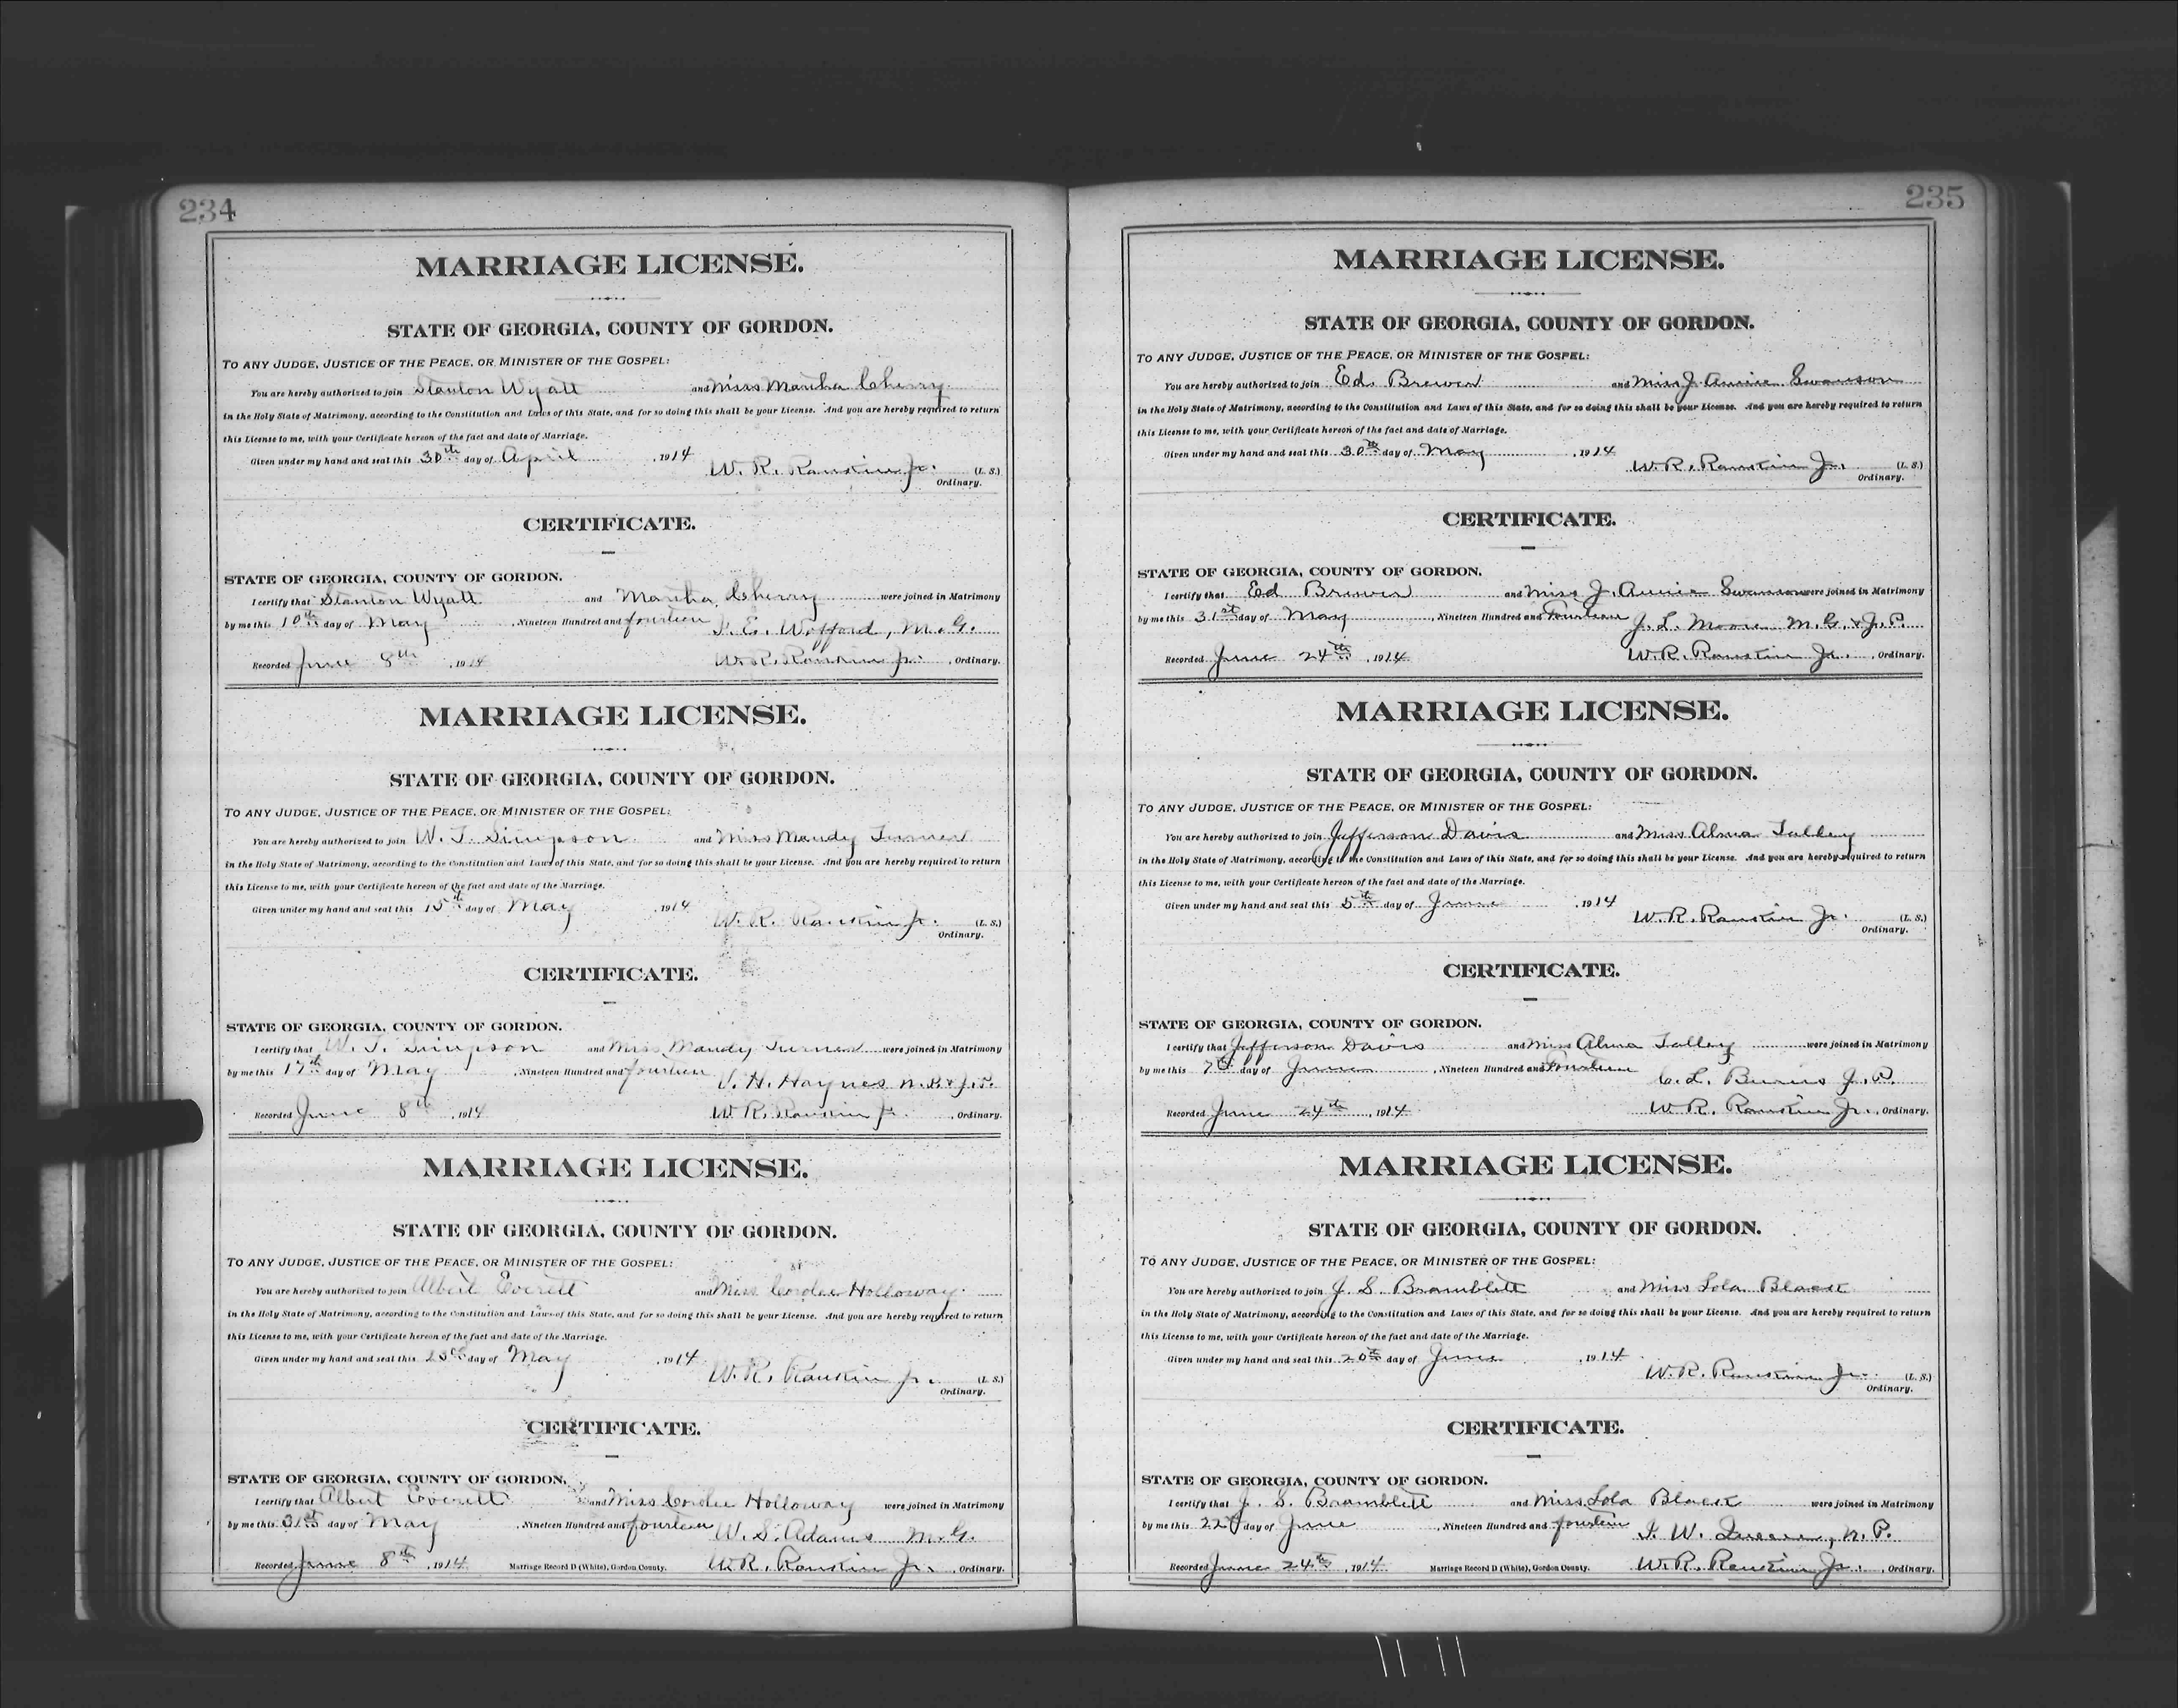 234
MARRIAGE LICENSE.
STATE OF GEORGIA, COUNTY OF GORDON.
TO ANY JUDGE, JUSTICE OF THE PEACE, OR MINISTER OF THE GOSPEL:
You are hereby authorized to join Stanton Wyatt and Miss Martha Cherry
in the Holy State of Matrimony, according to the Constitution and Laws of this State, and for so doing this shall be your License. And you are hereby required to return
this License to me, with your Certificate hereon of the fact and date of Marriage.
Given under my hand and seal this 30th day of April, 1914
W. R. Rankin Jr. (L. S.)
Ordinary.
CERTIFICATE.
STATE OF GEORGIA, COUNTY OF GORDON.
I certify that Stanton Wyatt and Martha Cherry were joined in Matrimony
by me this 10th day of May, Nineteen Hundred and fourteen J. E. Wofford, M. G.
Recorded June 8th, 1914 W. R. Rankin Jr., Ordinary.
MARRIAGE LICENSE.
STATE OF GEORGIA, COUNTY OF GORDON.
TO ANY JUDGE, JUSTICE OF THE PEACE, OR MINISTER OF THE GOSPEL:
You are hereby authorized to join W. T. Simpson and Miss Mandy Turner
in the Holy State of Matrimony, according to the Constitution and Laws of this State, and for so doing this shall be your License. And you are hereby required to return
this License to me, with your Certificate hereon of the fact and date of the Marriage.
Given under my hand and seal this 15th day of May, 1914
W. R. Rankin Jr. (L. S.)
Ordinary.
CERTIFICATE.
STATE OF GEORGIA, COUNTY OF GORDON.
I certify that W. T. Simpson and Miss Mandy Turner were joined in Matrimony
by me this 17th day of May, Nineteen Hundred and fourteen V. H. Haynes N. P. & J. P.
Recorded June 8th, 1914 W. R. Rankin Jr., Ordinary.
MARRIAGE LICENSE.
STATE OF GEORGIA, COUNTY OF GORDON.
TO ANY JUDGE, JUSTICE OF THE PEACE, OR MINISTER OF THE GOSPEL:
You are hereby authorized to join Albert Everett and Miss Cordie Holloway
in the Holy State of Matrimony, according to the Constitution and Laws of this State, and for so doing this shall be your License. And you are hereby required to return
this License to me, with your Certificate hereon of the fact and date of the Marriage.
Given under my hand and seal this day of May, 1914
W. R. Rankin Jr. (L. S.)
Ordinary.
CERTIFICATE.
STATE OF GEORGIA, COUNTY OF GORDON.
I certify that Albert Everett and Miss Cordie Holloway were joined in Matrimony
by me this 31st day of May, Nineteen Hundred and fourteen W. S. Adams M. G.
Recorded June 8th, 1914 Marriage Record D (White), Gordon County. W. R. Rankin Jr., Ordinary.
235
MARRIAGE LICENSE.
STATE OF GEORGIA, COUNTY OF GORDON.
TO ANY JUDGE, JUSTICE OF THE PEACE, OR MINISTER OF THE GOSPEL:
You are hereby authorized to join Ed. Brewer and Miss J. Annie Swanson
in the Holy State of Matrimony, according to the Constitution and Laws of this State, and for so doing this shall be your License. And you are hereby required to return
this License to me, with your Certificate hereon of the fact and date of Marriage.
Given under my hand and seal this 30th day of May, 1914
W. R. Rankin Jr. (L. S.)
Ordinary.
CERTIFICATE.
STATE OF GEORGIA, COUNTY OF GORDON.
I certify that Ed Brewer and Miss J. Annie Swanson were joined in Matrimony
by me this 31st day of May, Nineteen Hundred and Fourteen J. L. Moore M. G. & J. P.
Recorded June 24th, 1914 W. R. Rankin Jr., Ordinary.
MARRIAGE LICENSE.
STATE OF GEORGIA, COUNTY OF GORDON.
TO ANY JUDGE, JUSTICE OF THE PEACE, OR MINISTER OF THE GOSPEL:
You are hereby authorized to join Jefferson Davis and Miss Alma Talley
in the Holy State of Matrimony, according to the Constitution and Laws of this State, and for so doing this shall be your License. And you are hereby required to return
this License to me, with your Certificate hereon of the fact and date of the Marriage.
Given under my hand and seal this 5th day of June, 1914
W. R. Rankin Jr. (L. S.)
Ordinary.
CERTIFICATE.
STATE OF GEORGIA, COUNTY OF GORDON.
I certify that Jefferson Davis and Miss Alma Talley were joined in Matrimony
by me this 7th day of June, Nineteen Hundred and Fourteen C. L. Burns J. P.
Recorded June 24th, 1914 W. R. Rankin Jr., Ordinary.
MARRIAGE LICENSE.
STATE OF GEORGIA, COUNTY OF GORDON.
TO ANY JUDGE, JUSTICE OF THE PEACE, OR MINISTER OF THE GOSPEL:
You are hereby authorized to join J. S. Bramblett and Miss Lola Black
in the Holy State of Matrimony, according to the Constitution and Laws of this State, and for so doing this shall be your License. And you are hereby required to return
this License to me, with your Certificate hereon of the fact and date of the Marriage.
Given under my hand and seal this 20th day of June, 1914
W. R. Rankin Jr. (L. S.)
Ordinary.
CERTIFICATE.
STATE OF GEORGIA, COUNTY OF GORDON.
I certify that J. S. Bramblett and Miss Lola Black were joined in Matrimony
by me this 22d day of June, Nineteen Hundred and fourteen W. N. P.
Recorded June 24th, 1914 Marriage Record D (White), Gordon County. W. R. Rankin Jr., Ordinary.